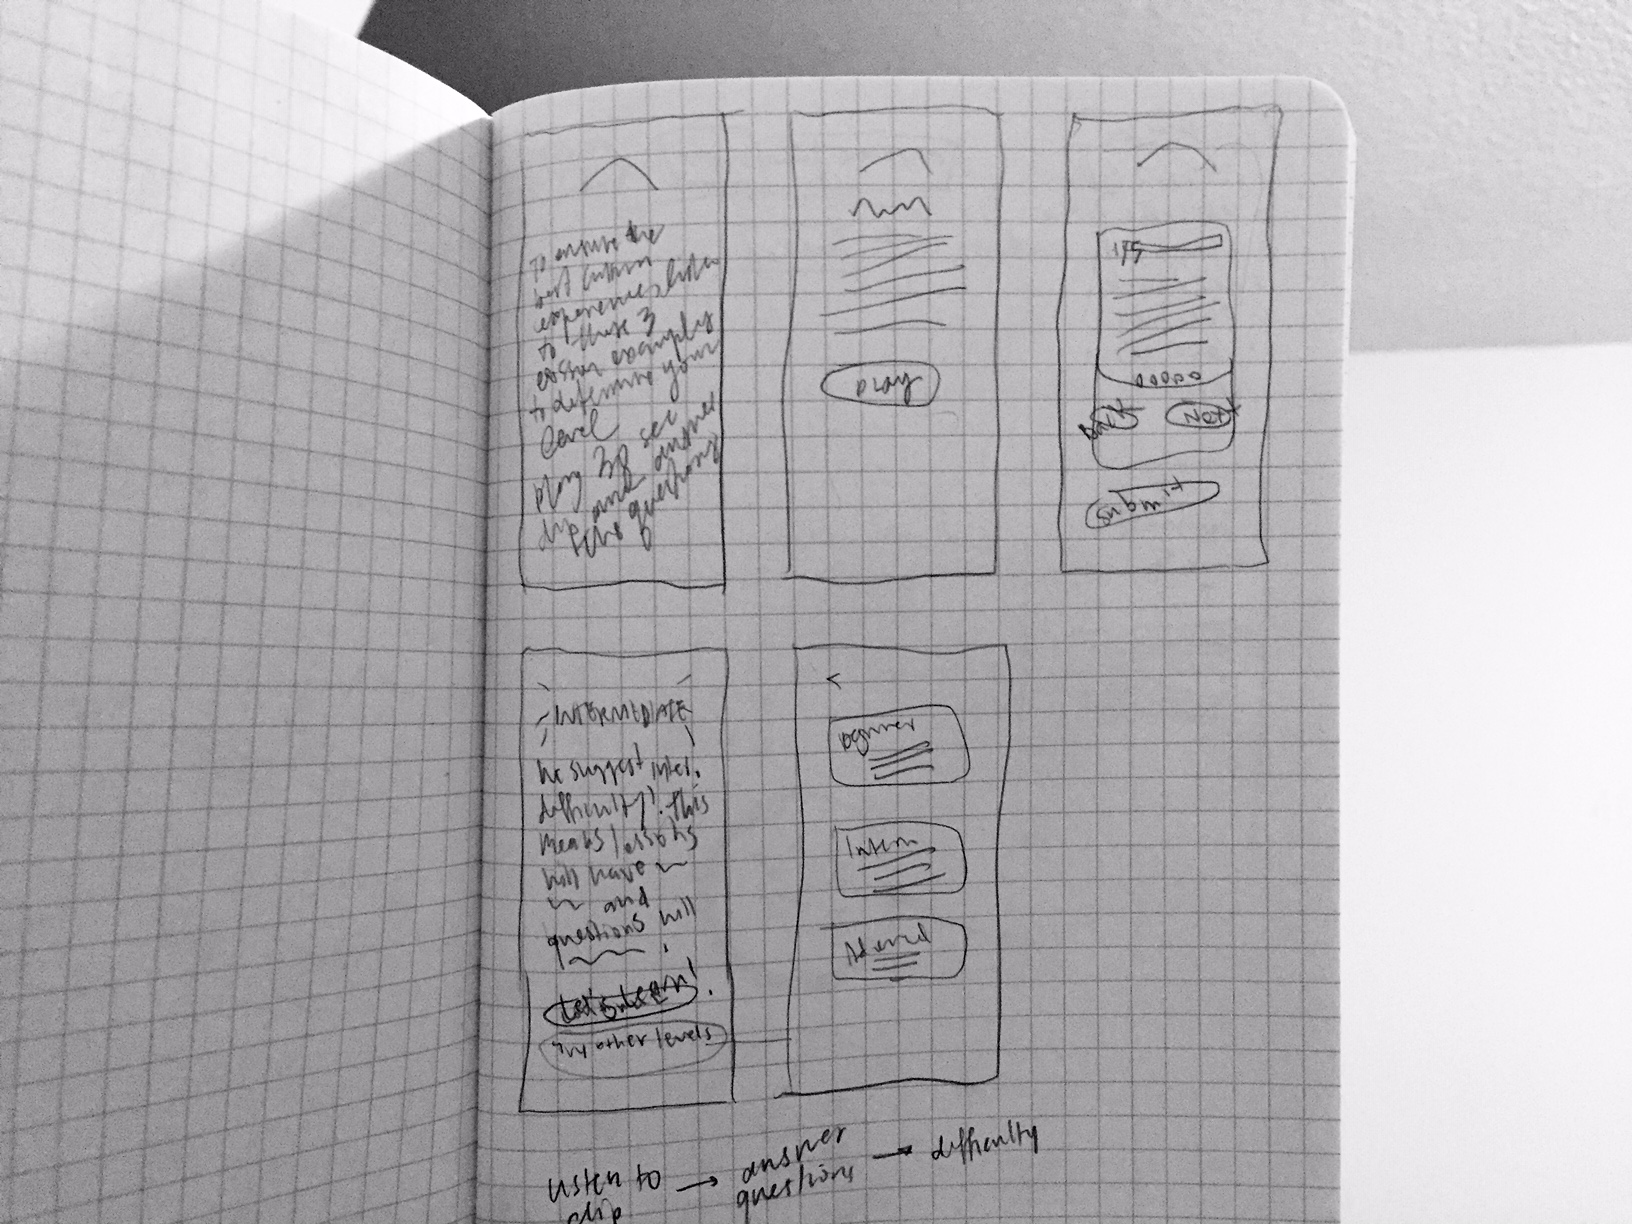 To ensure the
best custom
experience, listen
to these 3
lesson examples
to determine your
level
Play 38 sec
clip and answer
the questions
1/5
Back
Next
Submit
INTERMEDIATE
We suggest inter.
difficulty! This
means lessons
will have
and
questions will
!
Let's learn!
Try other levels
<
Beginner
Interm
Advanced
Listen to
clip
→
answer
questions
→
difficulty